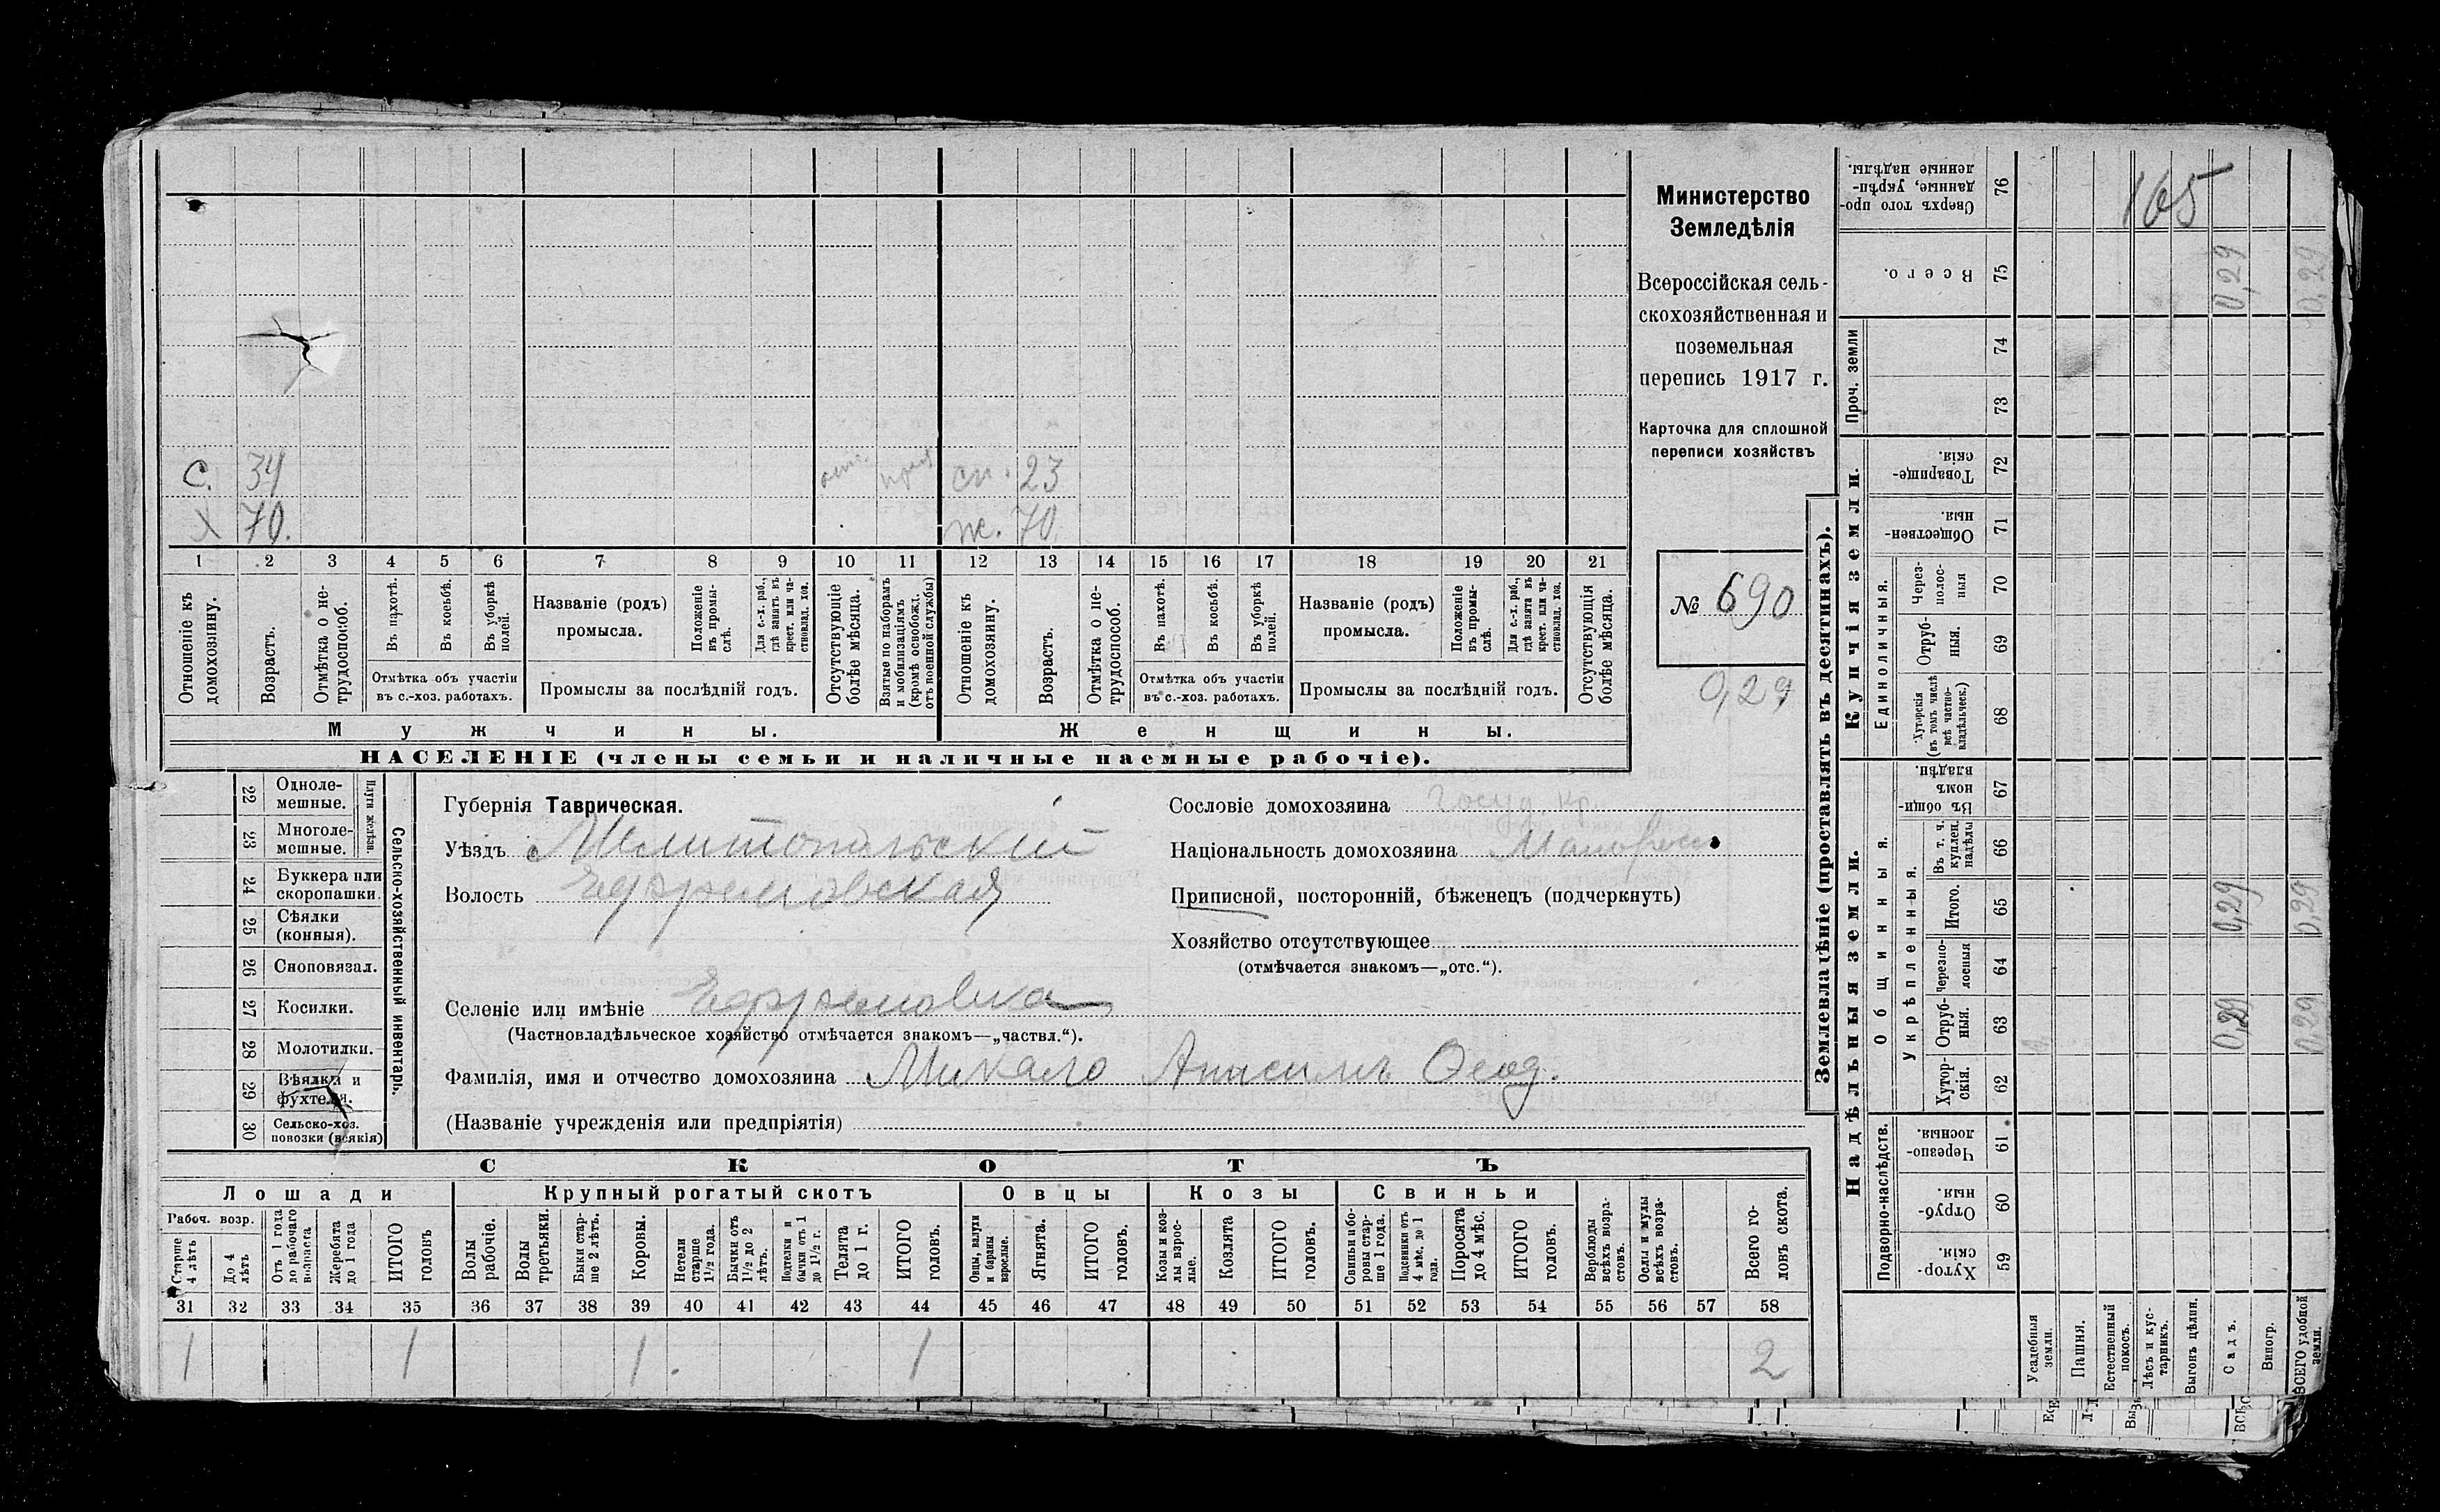 Министерство
Земледѣлія
Всероссійская сель-
скохозяйственная и
поземельная
перепись 1917 г.
Карточка для сплошной
переписи хозяйствъ
№ 690
0,29
165
с. 34 отс. сп. 23
х 70. ж. 70
1 2 3 4 5 6 7 8 9 10 11 12 13 14 15 16 17 18 19 20 21
Отношеніе къ домохозяину.
Возрастъ.
Отмѣтка о не-
трудоспособ.
Въ пахотѣ.
Въ косьбѣ.
Въ уборкѣ полей.
Отмѣтка объ участіи
въ с.-хоз. работахъ.
Названіе (родъ)
промысла.
Положеніе въ промы-
слѣ.
Для с.-х. раб.,
гдѣ занятъ въ
крест. или ча-
стновлад. хоз.
Промыслы за послѣдній годъ.
Отсутствующіе
болѣе мѣсяца.
Взятые по наборамъ
и мобилизаціямъ
(кромѣ освобожд.
отъ военной службы)
Отношеніе къ
домохозяину.
Возрастъ.
Отмѣтка о не-
трудоспособ.
Въ пахотѣ.
Въ косьбѣ.
Въ уборкѣ
полей.
Отмѣтка объ участіи
въ с.-хоз. работахъ.
Названіе (родъ)
промысла.
Положеніе
въ промы-
слѣ.
Для с.-х. раб.,
гдѣ занята въ
крест. или ча-
стновлад. хоз.
Промыслы за послѣдній годъ.
Отсутствующія
болѣе мѣсяца.
Мужчины.
Женщины.
НАСЕЛЕНІЕ (члены семьи и наличные наемные рабочіе).
22 Одноле-
мешные.
23 Многоле-
мешные.
Плуги желѣзн.
24 Буккера или
скоропашки.
25 Сѣялки
(конныя).
26 Сноповязал.
27 Косилки.
28 Молотилки.
29 Вѣялки и
фухтеля.
30 Сельско-хоз.
повозки (всякія)
Сельско-хозяйственный инвентарь.
Губернія Таврическая.
Уѣздъ Мелитопольскій
Волость Ефремовская
Селеніе или имѣніе Ефремовка
(Частновладѣльческое хозяйство отмѣчается знакомъ—„частвл.“).
Фамилія, имя и отчество домохозяина Микало Анисимъ Ѳеод.
(Названіе учрежденія или предпріятія)
Сословіе домохозяина Госуд. кр.
Національность домохозяина Малоросс
Приписной, посторонній, бѣженецъ (подчеркнуть)
Хозяйство отсутствующее
(отмѣчается знакомъ—„отс.“).
СКОТЪ
Лошади
Крупный рогатый скотъ
Овцы
Козы
Свиньи
Рабоч. возр.
Старше
4 лѣтъ
До 4
лѣтъ
Отъ 1 года
до рабочаго
возраста
Жеребята
до 1 года
ИТОГО
головъ
Волы
рабочіе.
Волы
третьяки.
Быки стар-
ше 2 лѣтъ.
Коровы.
Нетели
старше
1½ года.
Бычки отъ
1½ до 2
лѣтъ.
Подтелки и
бычки отъ 1
до 1½ г.
Телята
до 1 г.
ИТОГО
головъ.
Овцы, валухи
и бараны
взрослые.
Ягнята.
ИТОГО
головъ.
Козы и коз-
лы взрос-
лые.
Козлята
ИТОГО
головъ.
Свиньи и бо-
ровы стар-
ше 1 года.
Подсвинки отъ
4 мѣс. до 1
года.
Поросята
до 4 мѣс.
ИТОГО
головъ.
Верблюды
всѣхъ возра-
стовъ.
Ослы и мулы
всѣхъ возра-
стовъ.
Всего го-
ловъ скота.
31 32 33 34 35 36 37 38 39 40 41 42 43 44 45 46 47 48 49 50 51 52 53 54 55 56 57 58
1 1 1. 1 2
Землевладѣніе (проставлять въ десятинахъ).
Сверхъ того про-
данные, укрѣп-
ленные надѣлы. 76
Всего. 75 0,29 0,29
Проч. земли
74
73
Купчія земли.
Товарище-
скія. 72
Обществен-
ныя. 71
Единоличныя.
Через-
полос-
ныя 70
Отруб-
ныя. 69
Хуторскія
(въ томъ числѣ
всѣ частно-
владѣльческ.) 68
Надѣльныя земли.
Общинныя.
Въ общи-
номъ
владѣн. 67
Укрѣпленныя.
Въ т. ч.
куплен.
надѣлы 66
Итого. 65 0,29 0,29
Черезпо-
лосныя 64
Отруб-
ныя. 63 0,29 0,29
Хутор-
скія. 62
Подворно-наслѣдств.
Черезпо-
лосныя. 61
Отруб-
ныя. 60
Хутор-
скія. 59
Усадебныя
земли.
Пашня.
Естественный
покосъ.
Лѣсъ и кус-
тарникъ.
Выгонъ цѣлин.
Садъ.
Виногр.
ВСЕГО удобной
земли.